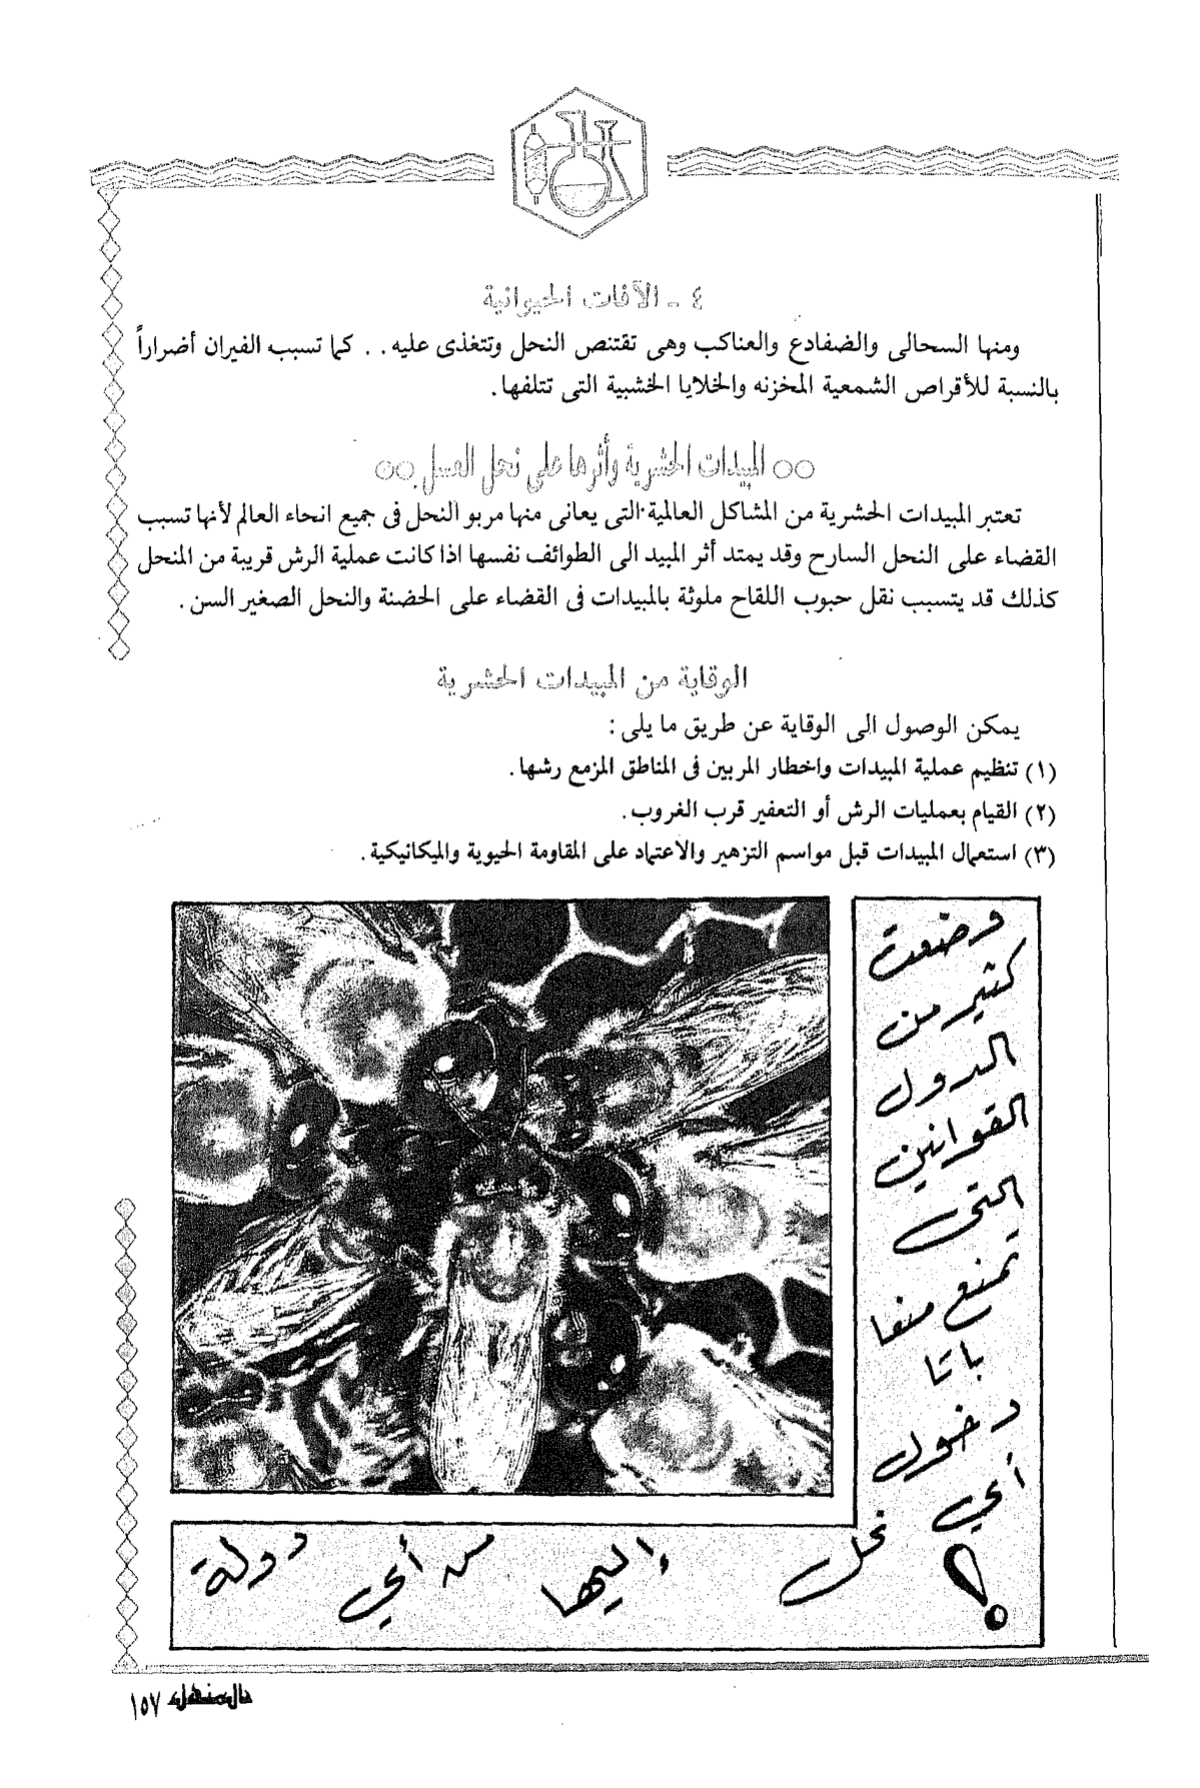 ٤ - الآفات الحيوانية
ومنها السحالى والضفادع والعناكب وهى تقتنص النحل وتتغذى عليه . . كما تسبب الفيران أضراراً
بالنسبة للأقراص الشمعية المخزنه والخلايا الخشبية التى تتلفها .
○○ المبيدات الحشرية وأثرها على نحل العسل ○○
تعتبر المبيدات الحشرية من المشاكل العالمية التى يعانى منها مربو النحل فى جميع انحاء العالم لأنها تسبب
القضاء على النحل السارح وقد يمتد أثر المبيد الى الطوائف نفسها اذا كانت عملية الرش قريبة من المنحل
كذلك قد يتسبب نقل حبوب اللقاح ملوثة بالمبيدات فى القضاء على الحضنة والنحل الصغير السن .
الوقاية من المبيدات الحشرية
يمكن الوصول الى الوقاية عن طريق ما يلى :
(١) تنظيم عملية المبيدات واخطار المربين فى المناطق المزمع رشها .
(٢) القيام بعمليات الرش أو التعفير قرب الغروب .
(٣) استعمال المبيدات قبل مواسم التزهير والاعتماد على المقاومة الحيوية والميكانيكية .
وضعت
كثير من
الدول
القوانين
التى
تمنع منعا
باتا
دخول
أي
نحل إليها من أي دولة !
المنهل ١٥٧